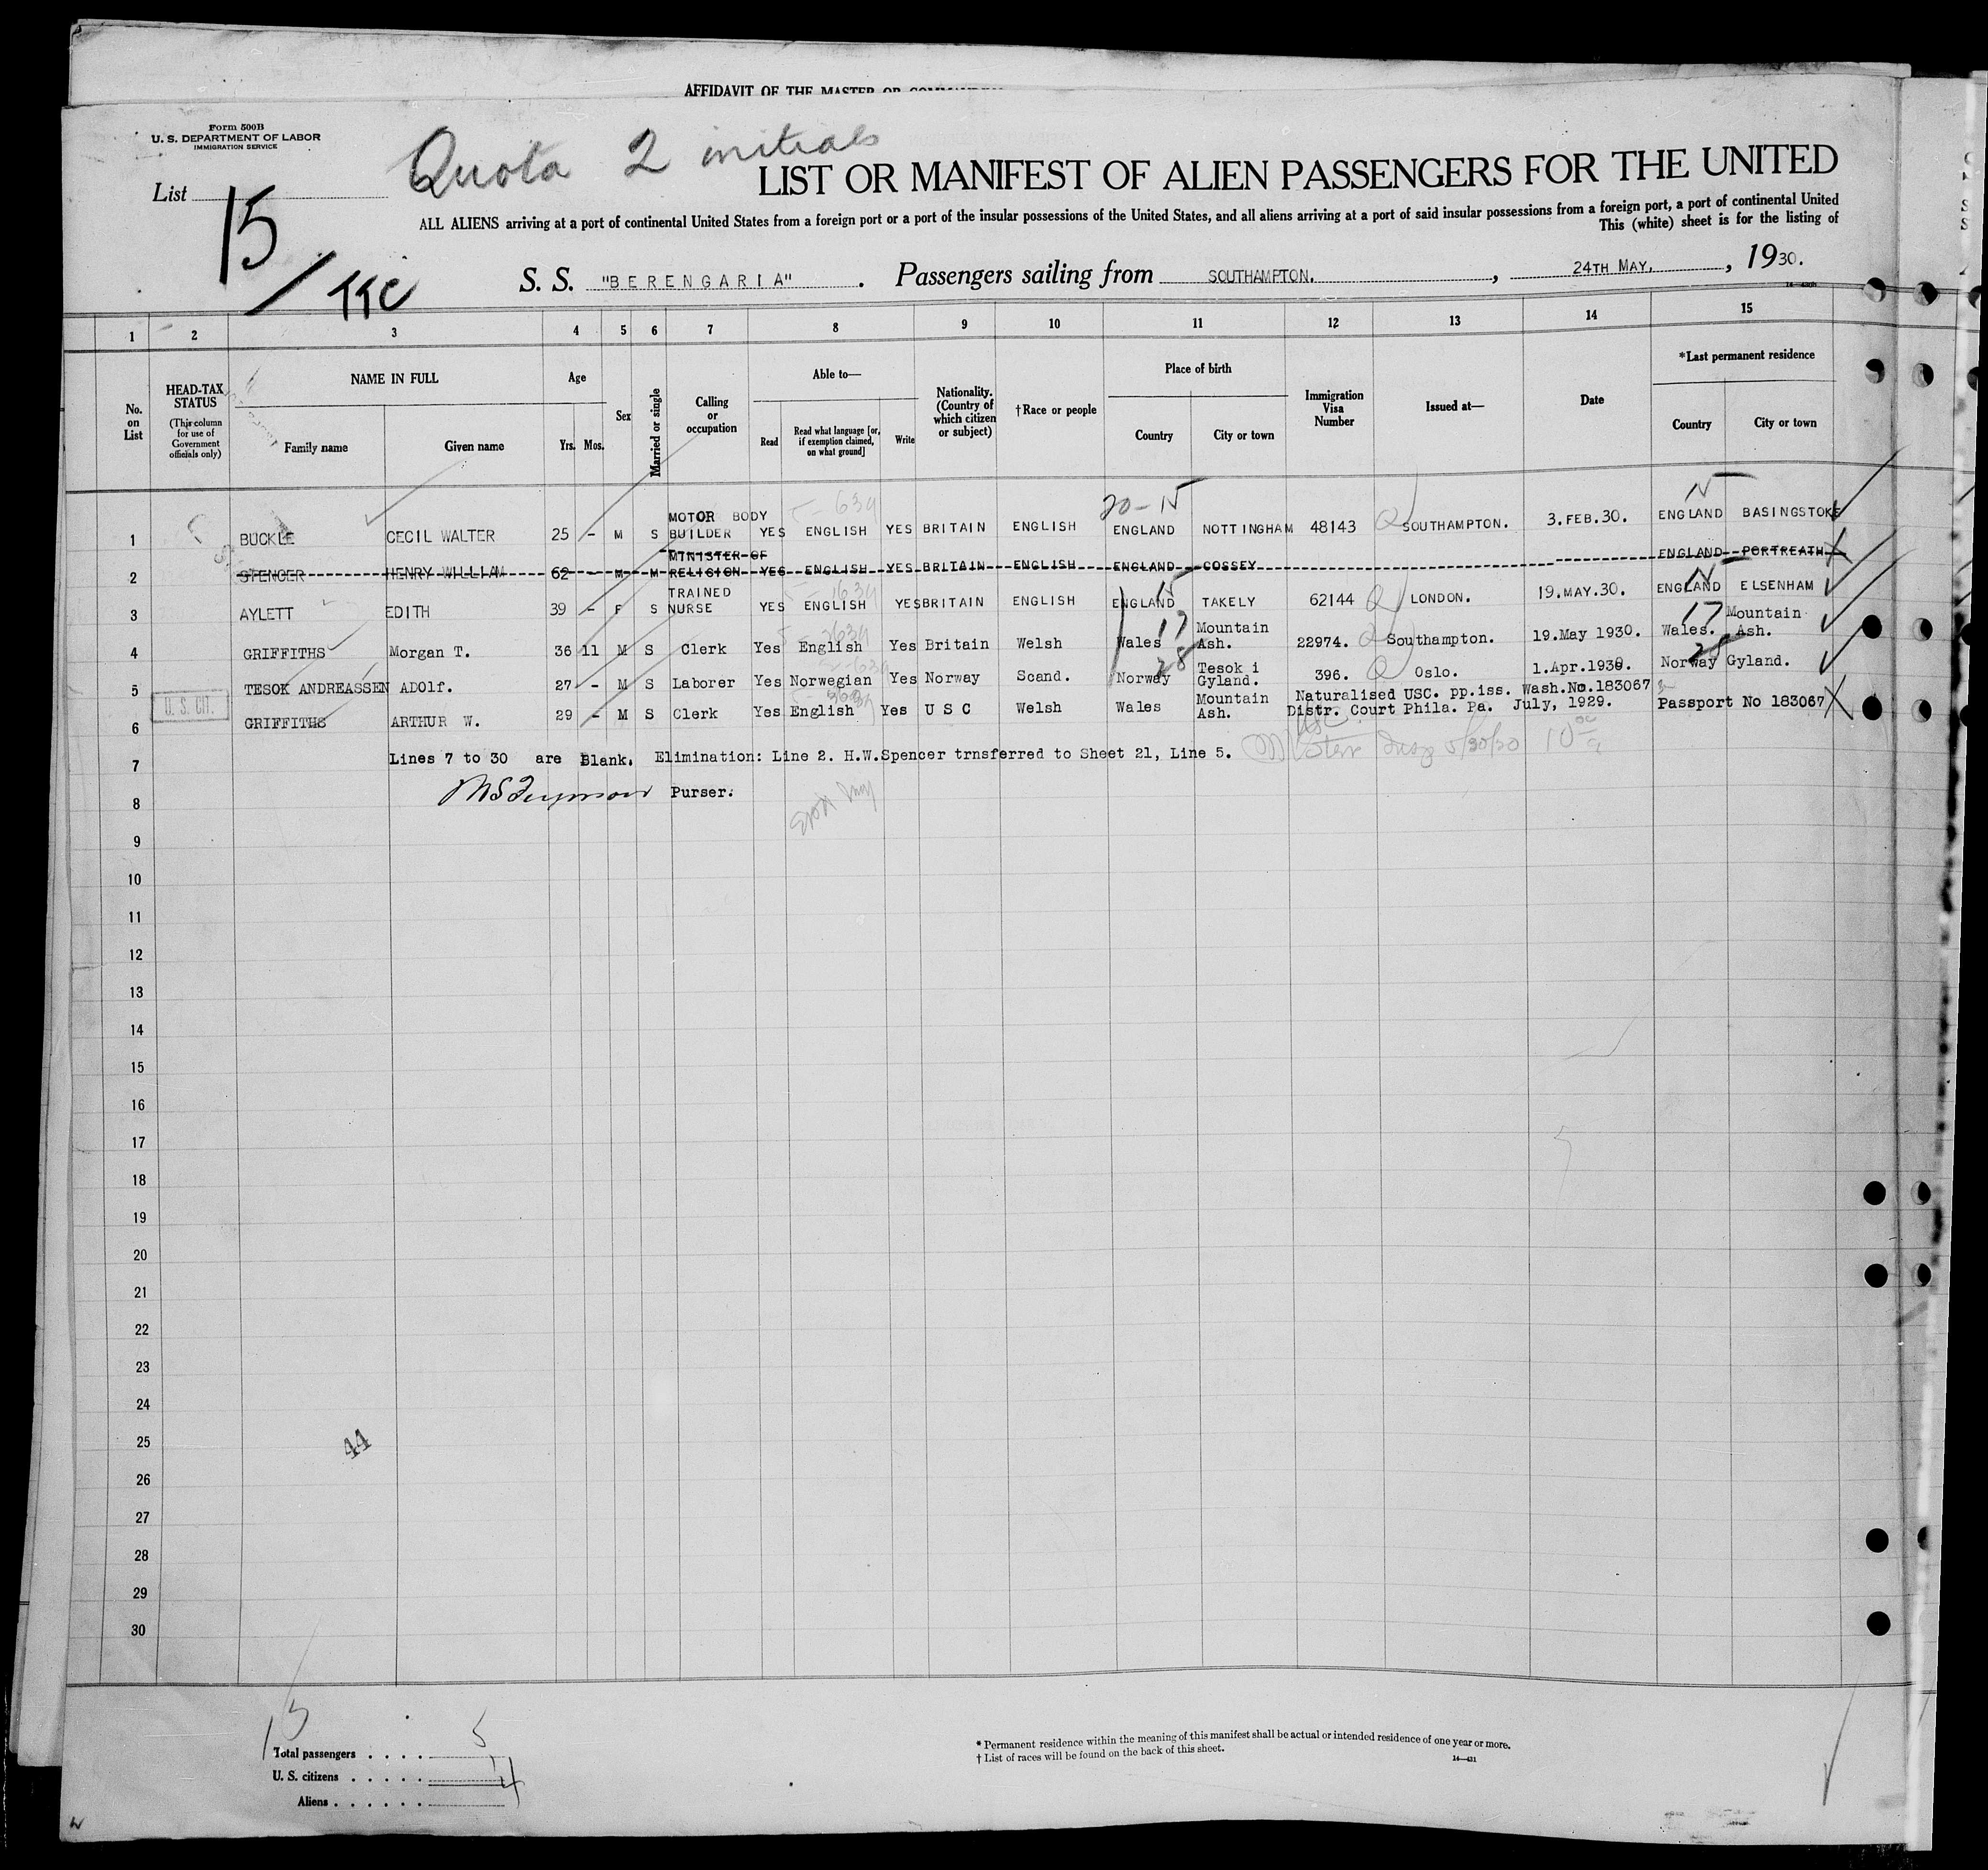 AFFIDAVIT OF THE MASTER OR
Form 500B
U. S. DEPARTMENT OF LABOR
IMMIGRATION SERVICE
Quota 2 initials
LIST OR MANIFEST OF ALIEN PASSENGERS FOR THE UNITED
List
15
ALL ALIENS arriving at a port of continental United States from a foreign port or a port of the insular possessions of the United States, and all aliens arriving at a port of said insular possessions from a foreign port, a port of continental United
This (white) sheet is for the listing of
TTC
S. S. "BERENGARIA". Passengers sailing from SOUTHAMPTON. , 24TH MAY. , 1930.
1 2 3 4 5 6 7 8 9 10 11 12 13 14 15
No. on List
HEAD-TAX STATUS (This column for use of Government officials only)
NAME IN FULL Family name Given name
Age Yrs. Mos.
Sex
Married or single
Calling or occupation
Able to— Read Read what language [or, if exemption claimed, on what ground] Write
Nationality. (Country of which citizen or subject)
†Race or people
Place of birth Country City or town
Immigration Visa Number
Issued at—
Date
*Last permanent residence Country City or town
20-15 15
1 BUCKLE CECIL WALTER 25 - M S MOTOR BODY BUILDER YES ENGLISH YES BRITAIN ENGLISH ENGLAND NOTTINGHAM 48143 Q SOUTHAMPTON. 3.FEB.30. ENGLAND BASINGSTOKE
2 SPENCER HENRY WILLIAM 62 - M M MINISTER OF RELIGION YES ENGLISH YES BRITAIN ENGLISH ENGLAND COSSEY ENGLAND PORTREATH
3 AYLETT EDITH 39 - F S TRAINED NURSE YES ENGLISH YES BRITAIN ENGLISH ENGLAND 15 TAKELY 62144 Q LONDON. 19.MAY.30. ENGLAND 15 ELSENHAM
4 GRIFFITHS Morgan T. 36 11 M S Clerk Yes English Yes Britain Welsh Wales 17 Mountain Ash. 22974. Q Southampton. 19.May 1930. Wales. 17 Mountain Ash.
5 TESOK ANDREASSEN ADOlf. 27 - M S Laborer Yes Norwegian Yes Norway Scand. Norway 28 Tesok i Gyland. 396. Q Oslo. 1.Apr.1930. Norway 28 Gyland.
U. S. CIT.
6 GRIFFITHS ARTHUR W. 29 - M S Clerk Yes English Yes U S C Welsh Wales Mountain Ash. Naturalised USC. pp.iss. Wash.No.183067
Distr. Court Phila. Pa. July, 1929. Passport No 183067
7 Lines 7 to 30 are Blank. Elimination: Line 2. H.W.Spencer trnsferred to Sheet 21, Line 5.
8 Purser.
9
10
11
12
13
14
15
16
17
18
19
20
21
22
23
24
25
44
26
27
28
29
30
15
Total passengers . . . . 5
U. S. citizens . . . . . 1
Aliens . . . . . . 4
* Permanent residence within the meaning of this manifest shall be actual or intended residence of one year or more.
† List of races will be found on the back of this sheet.
14—431